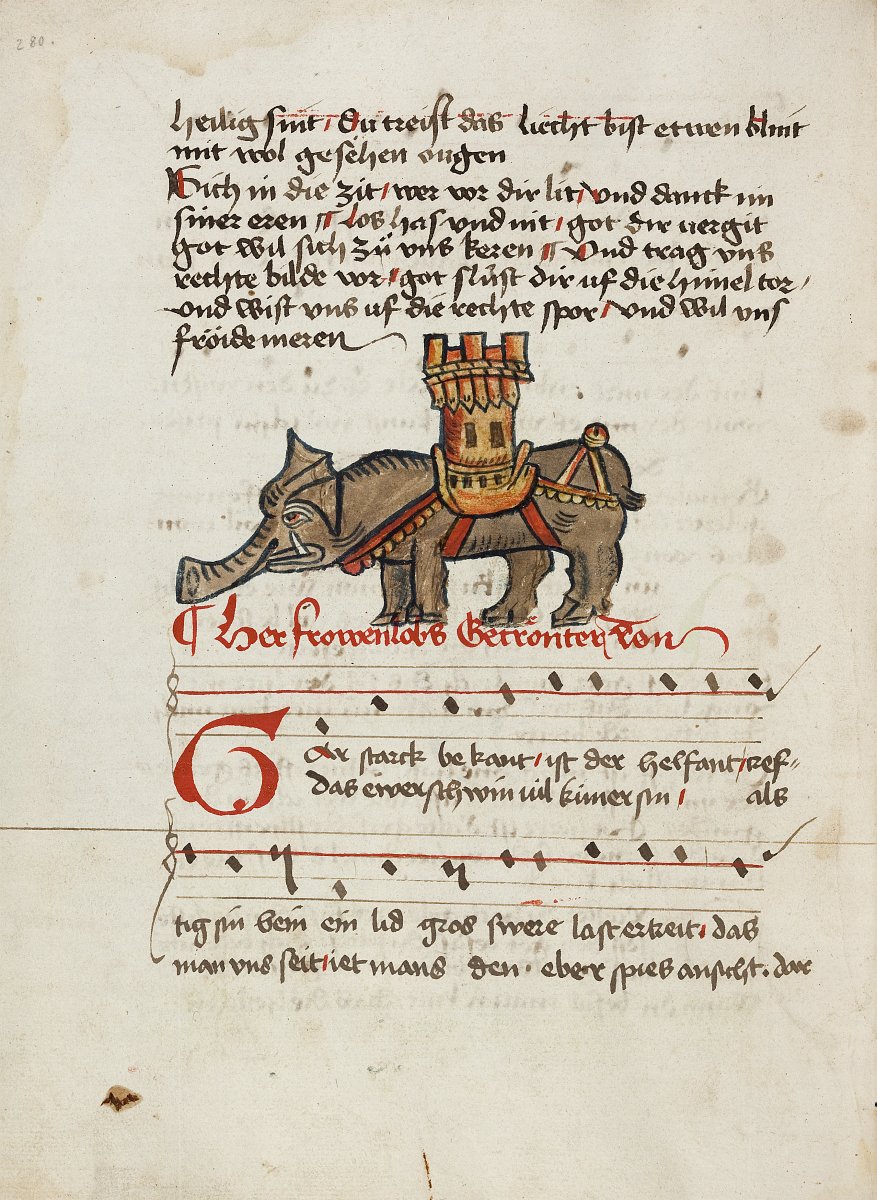 280.
heilig sint / Du treist das liecht bist etwen blint
mit wol gesehen ougen
Sich in die zit / wer vor dir lit / vnd danck im
siner eren ¶ los has vnd nit / got dir uergit
got wil sich zů vns keren ¶ Vnd trag vns
rechte bilde vor / got slůst dir uf die himel tor /
vnd wist vns uf die rechte spor / vnd wil vns
fröide meren
¶ Her frowenlobs Getrönter don
GAr starck be kant / ist der helfant / kef=
das ewer schwin uil kimer sin / als
tig sin bein ein lid gros swere last ertreit / das
man vns seit / iet mans den · eber spies ansicht · dar